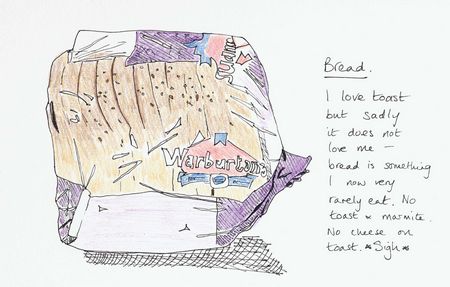 Warburtons
Bread.
I love toast
but sadly
it does not
love me –
bread is something
I now very
rarely eat. No
toast & marmite.
No cheese on
toast. *Sigh*